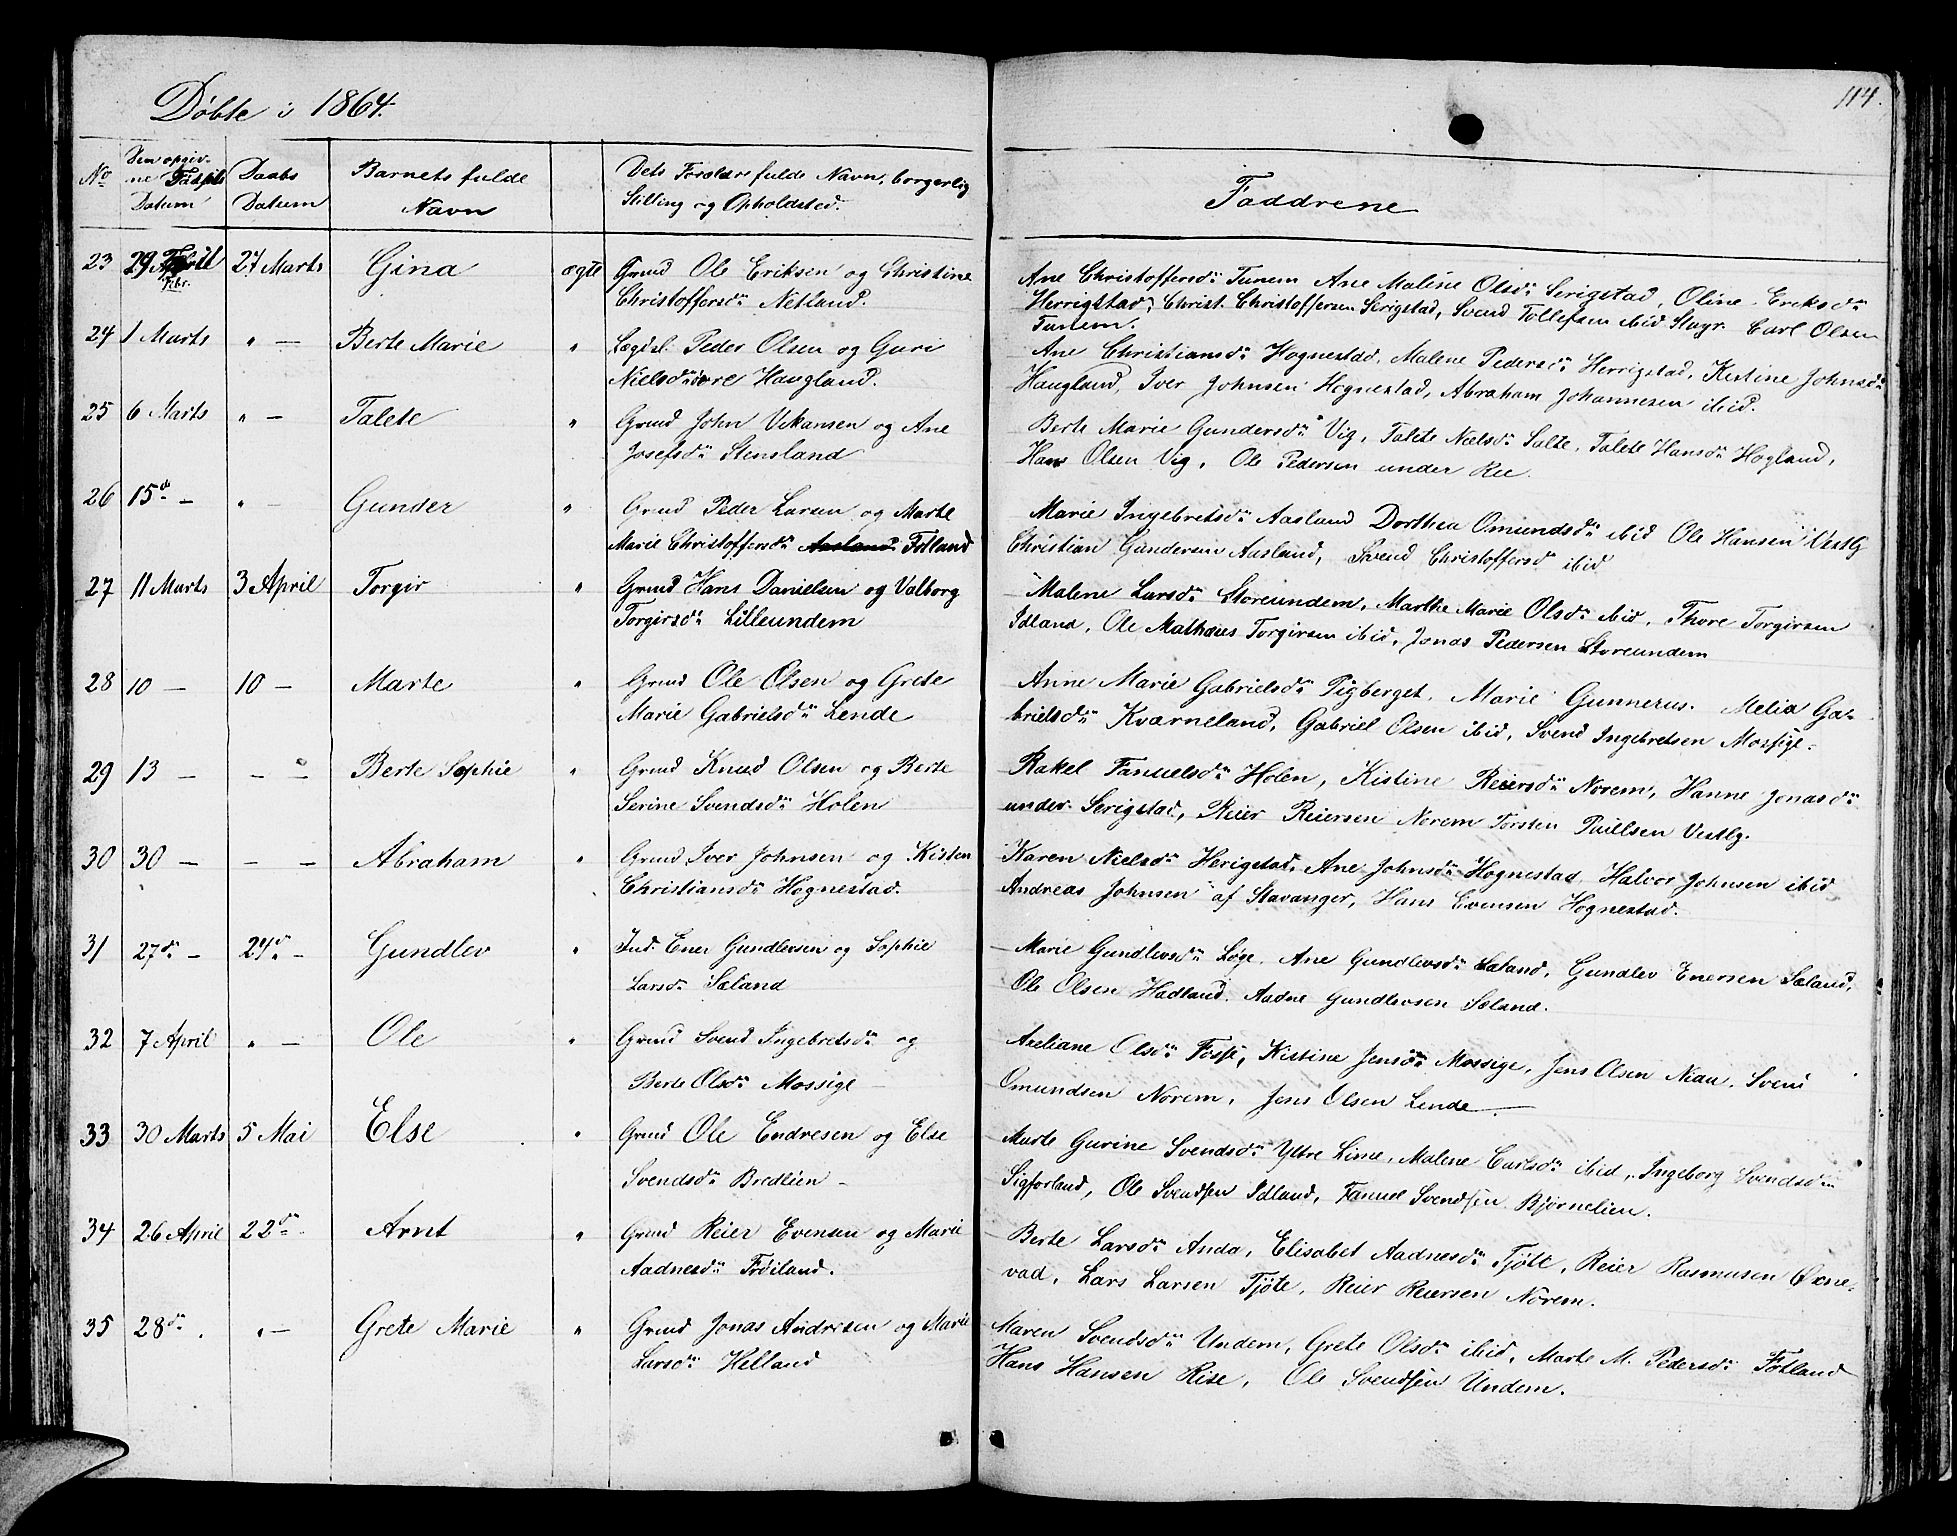 Døbte i 1864.
114.
No
Den opgiv-
ne Fødsels
Datum
Daabs
Datum
Barnets fulde
Navn
Dets Forældre fulde Navn, borgerlig
Stilling og Opholdsted.
Faddrene
23 29 Febr. 27 Marts Gina ægte Grmd Ole Eriksen og Christine
Christoffersdr Netland.
Ane Christoffersdr Tunem Ane Malene Olsdr Serigstad, Oline Eriksdr
Herrigstad, Christ. Christoffersen Serigstad, Svend Tollefsen ibid Carl Olsen
Tunem.
24 1 Marts " — Berte Marie " Lægdsl. Peder Olsen og Guri
Nielsdr Haugland.
Ane Christiansdr Hognestad, Malene Pedersdr Herrigstad, Kistine Johnsdr
Haugland, Iver Johnsen Hognestad, Abraham Johannesen ibid.
25 6 Marts " — Talete " Grmd John Vikansen og Ane
Josefsdr Stensland
Berte Marie Gundersdr Vig, Talete Nielsdr Salte, Talete Hansdr Hogland,
Hans Olsen Vig, Ole Pedersen under Ree.
26 15d — " — Gunder " Grmd Peder Larsen og Marte
Marie Christoffersdr Aasland Fotland
Marie Ingebretsdr Aasland Dorthea Omundsdr ibid Ole Hansen Vestly
Christian Gundersen Aasland, Svend Christoffersd ibid
27 11 Marts 3 April Torgir " Grmd Hans Danielsen og Valborg
Torgirsdr Lilleundem
Malene Larsdr Storeundem, Marthe Marie Olsdr ibid, Thore Torgirsen
Idland, Ole Mathæus Torgirsen ibid, Jonas Pedersen Storeundem
28 10 — 10 — Marte " Grmd Ole Olsen og Grete
Marie Gabrielsdr Lende
Anne Marie Gabrielsdr Tigberget, Marie Gunnerus. Melia Ga-
brielsdr Kværneland, Gabriel Olsen ibid, Svend Ingebretsen Mossige.
29 13 — — — Berte Sophie " Grmd Knud Olsen og Berte
Serine Svendsdr Holen
Rakel Fanuelsdr Holen, Kistine Reiersdr Norem, Hanne Jonasdr
under Serigstad, Reier Reiersen Norem Torsten Paulsen Vestly.
30 30 — — — Abraham " Grmd Iver Johnsen og Kisten
Christiansdr Hognestad.
Karen Nielsdr Herigstad, Ane Johnsdr Hognestad, Halvor Johnsen ibid
Andreas Johnsen af Stavanger, Hans Evensen Hognestad.
31 27d — 24d — Gundlev " Ind. Ener Gundlevsen og Sophie
Larsdr Sæland
Marie Gundlevsdr Løge, Ane Gundlevsdr Sæland, Gundlev Enersen Sæland,
Ole Olsen Hadland. Aadne Gundlevsen Sæland.
32 7 April " — Ole " Grmd Svend Ingebretsdr og
Berte Olsdr Mossige
Axeliane Olsdr Fosse, Kistine Jensdr Mossige, Jens Olsen Niau. Svend
Omundsen Norem, Jens Olsen Lende
33 30 Marts 5 Mai Else " Grmd Ole Endresen og Else
Svendsdr Bredlien
Marte Gurine Svendsdr Ytre Lime, Malene Carlsdr ibid, Ingeborg Svendsdr
Sigforland, Ole Svendsen Idland, Fanuel Svendsen Bjørnelien.
34 26 April 22d — Arnt " Grmd Reier Evensen og Marie
Aadnesdr Frøiland.
Berte Larsdr Anda, Elisabet Aadnesdr Tjøtt, Reier Rasmusen Oxne-
vad, Lars Larsen Tjøte, Reier Reiersen Norem.
35 28d. " — Grete Marie " Grmd Jonas Andresen og Marie
Larsdr Helland
Maren Svendsdr Undem, Grete Olsdr ibid, Marte M. Pedersdr Fotland
Hans Hansen Rise, Ole Svendsen Undem.